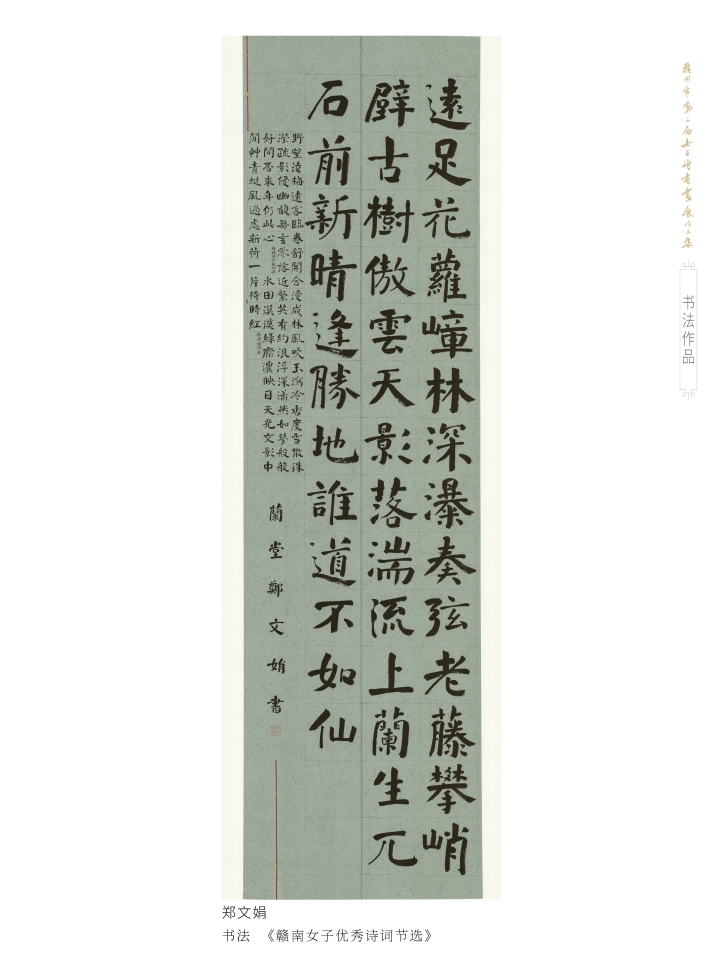 遠足花蘿嶂林深瀑奏弦老藤攀峭
壁古樹傲雲天影落湍流上蘭生兀
石前新晴逢勝地誰道不如仙
野墅凌梅遠客臨卷舒開合漫成林風吹玉濁冷香度雪散珠
瀠疏影侵幽馥每言零落近繁英有約浪浮深瀟然如夢般般
好問君來年仍此心 水田漠漠綠廕濃映日天光文影中
閒艸青蜓風過處新荷一片待時紅
蘭堂鄭文娟書
赣州市第二届女子诗书画展作品集
书法作品
郑文娟
书法 《赣南女子优秀诗词节选》